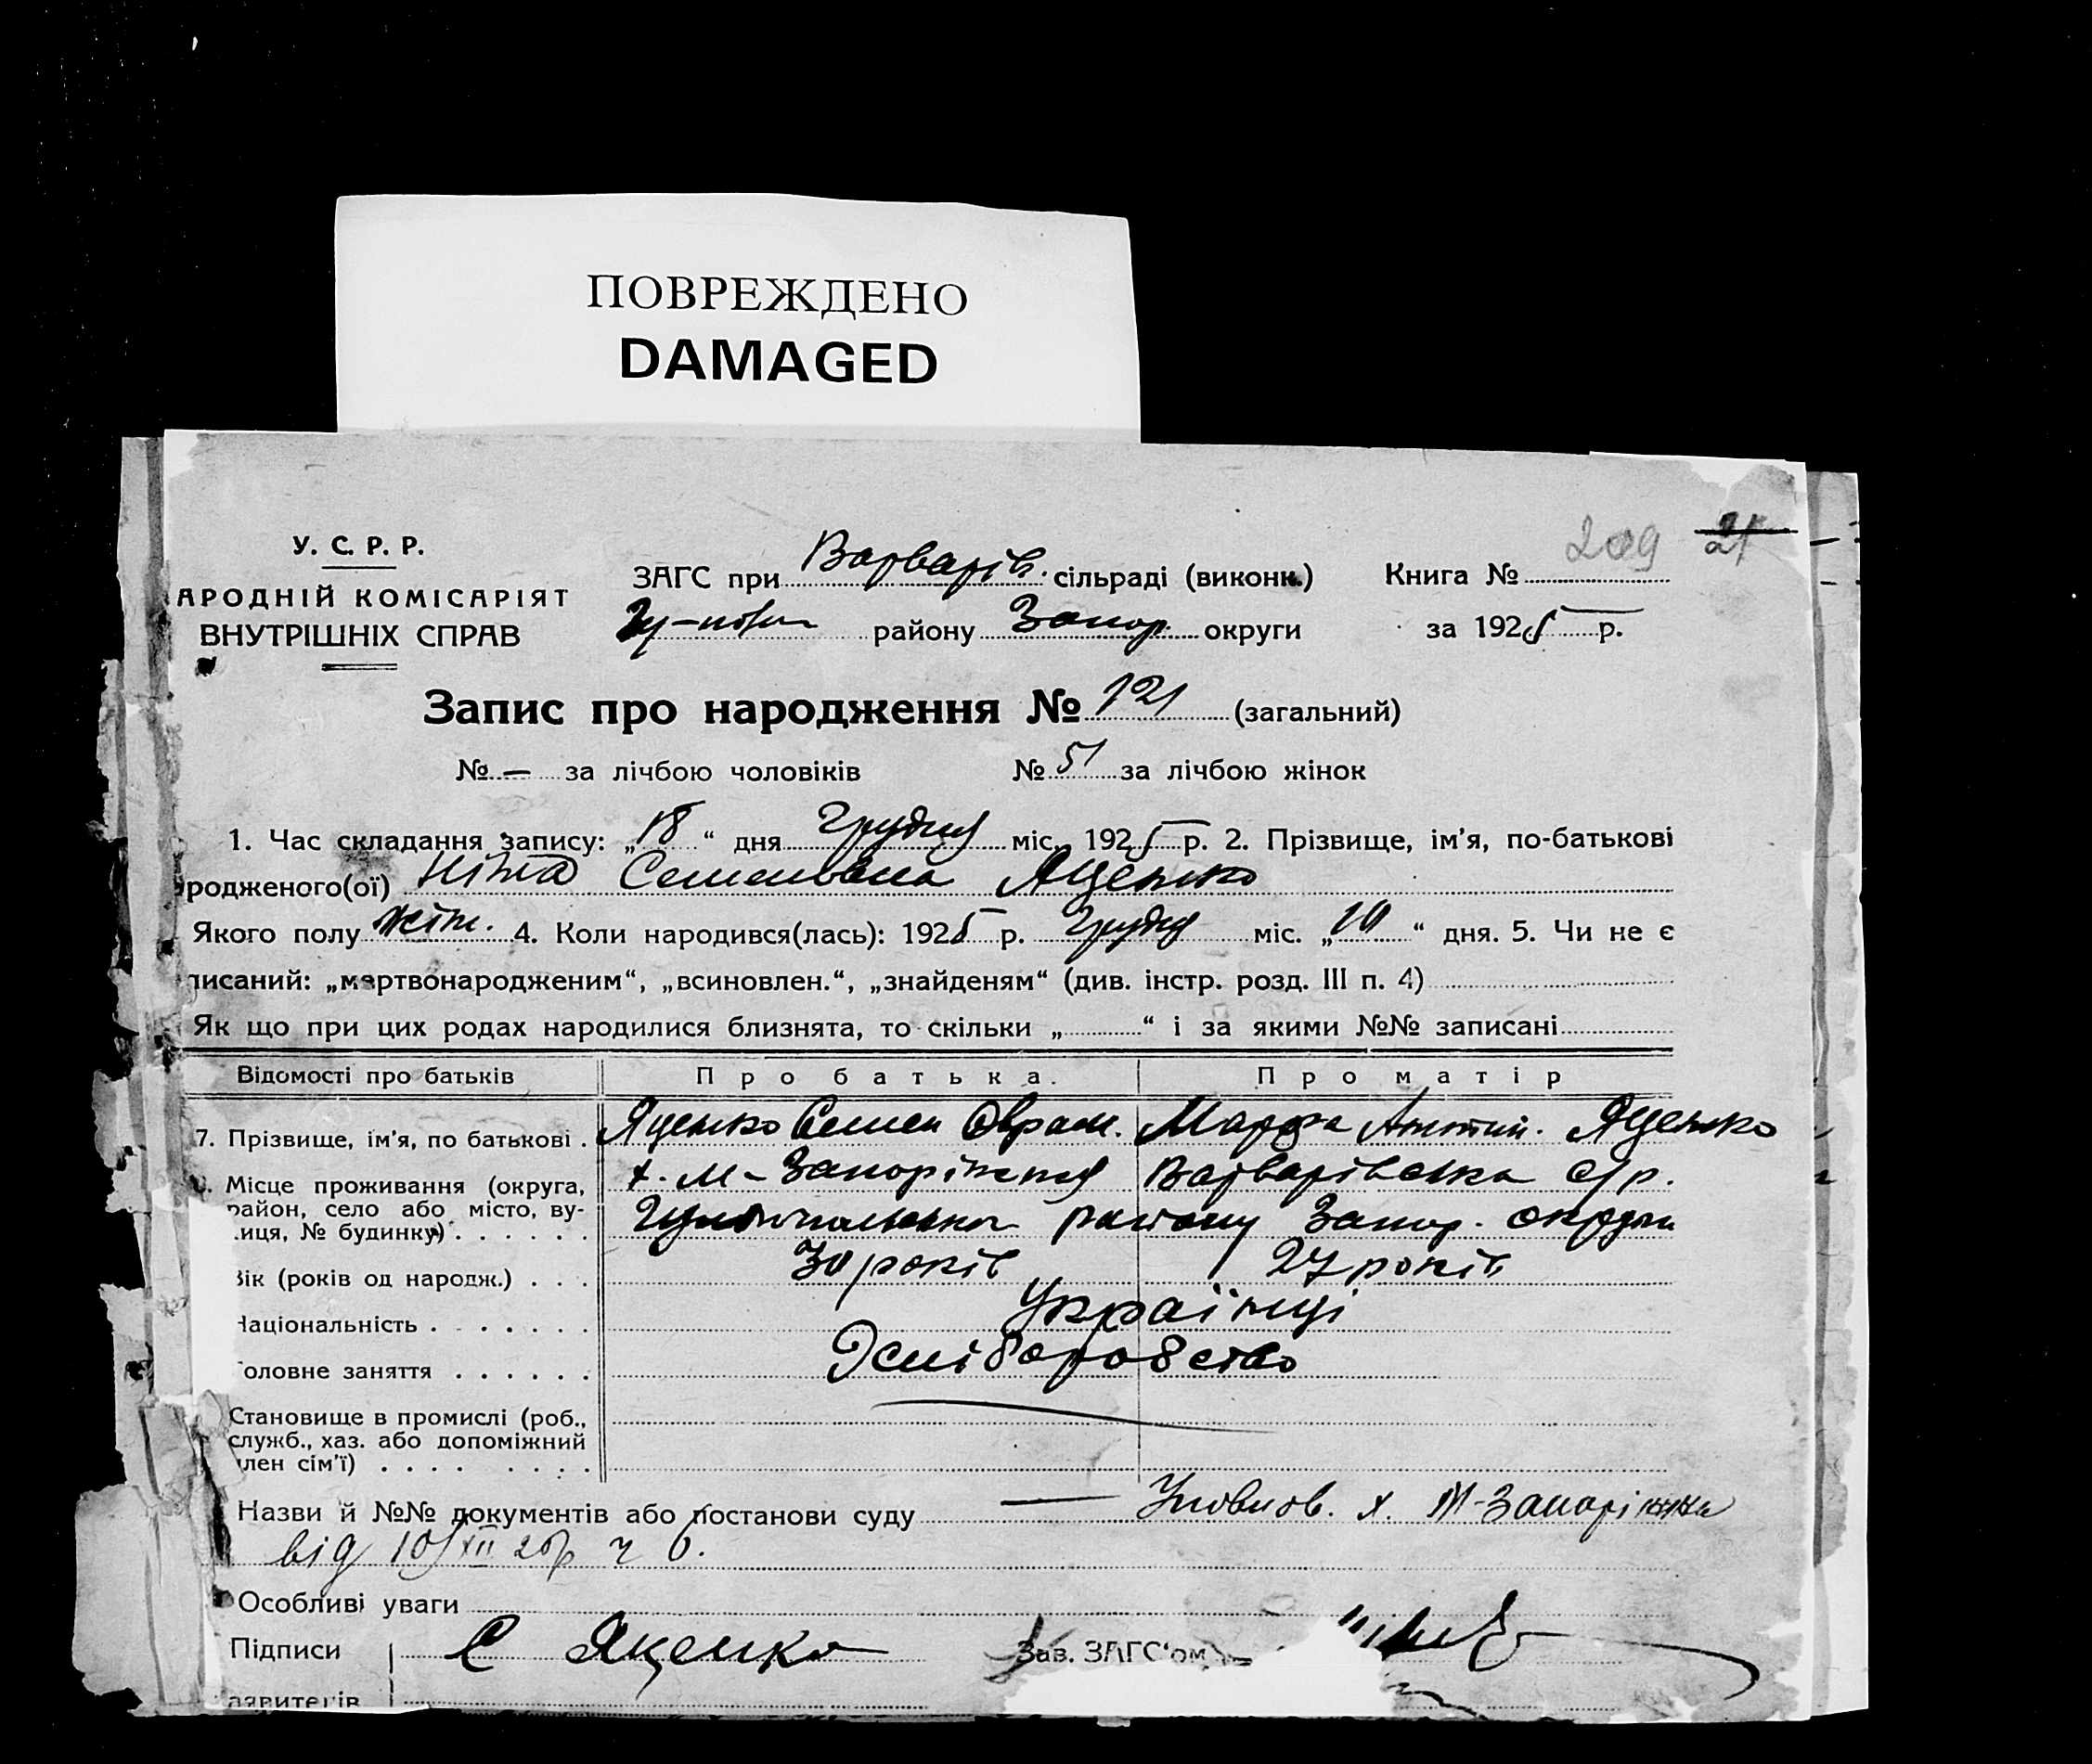 ПОВРЕЖДЕНО
DAMAGED
209 21
У. С. Р. Р.
АРОДНІЙ КОМІСАРІЯТ
ВНУТРІШНІХ СПРАВ
ЗАГС при Варварів. сільраді (виконк.) Книга №
району Запор. округи за 1925 р.
Запис про народження № 121 (загальний)
№ — за лічбою чоловіків № 51 за лічбою жінок
1. Час складання запису: „18“ дня Грудня міс. 1925 р. 2. Прізвище, ім'я, по-батькові
родженого(ої) Ніна Семенівна Яценко
Якого полу жін. 4. Коли народився(лась): 1925 р. Грудня міс. „10“ дня. 5. Чи не є
писаний: „мертвонародженим“, „всиновлен.“, „знайденям“ (див. інстр. розд. III п. 4)
Як що при цих родах народилися близнята, то скільки „ “ і за якими №№ записані
Відомості про батьків Про батька. Про матір
7. Прізвище, ім'я, по батькові . Яценко Семен Оврам. Марфа Антон. Яценко
Місце проживання (округа, х. М-Запоріжжя Варварівська с/р.
район, село або місто, ву-
иця, № будинку) . . . . . . Гуляйпільського району Запор. округи
Вік (років од народж.) . . . 30 років 27 років
Національність . . . . . . . Українці
оловне заняття . . . . . . Хліборобство
Становище в промислі (роб.,
служб., хаз. або допоміжний
член сім'ї) . . . . . . . .
Назви й №№ документів або постанови суду — Уповнов. х. М-Запоріжжя
від 10/XII 25р ч 6.
Особливі уваги
Підписи С Яценко Зав. ЗАГС'ом
аявителів